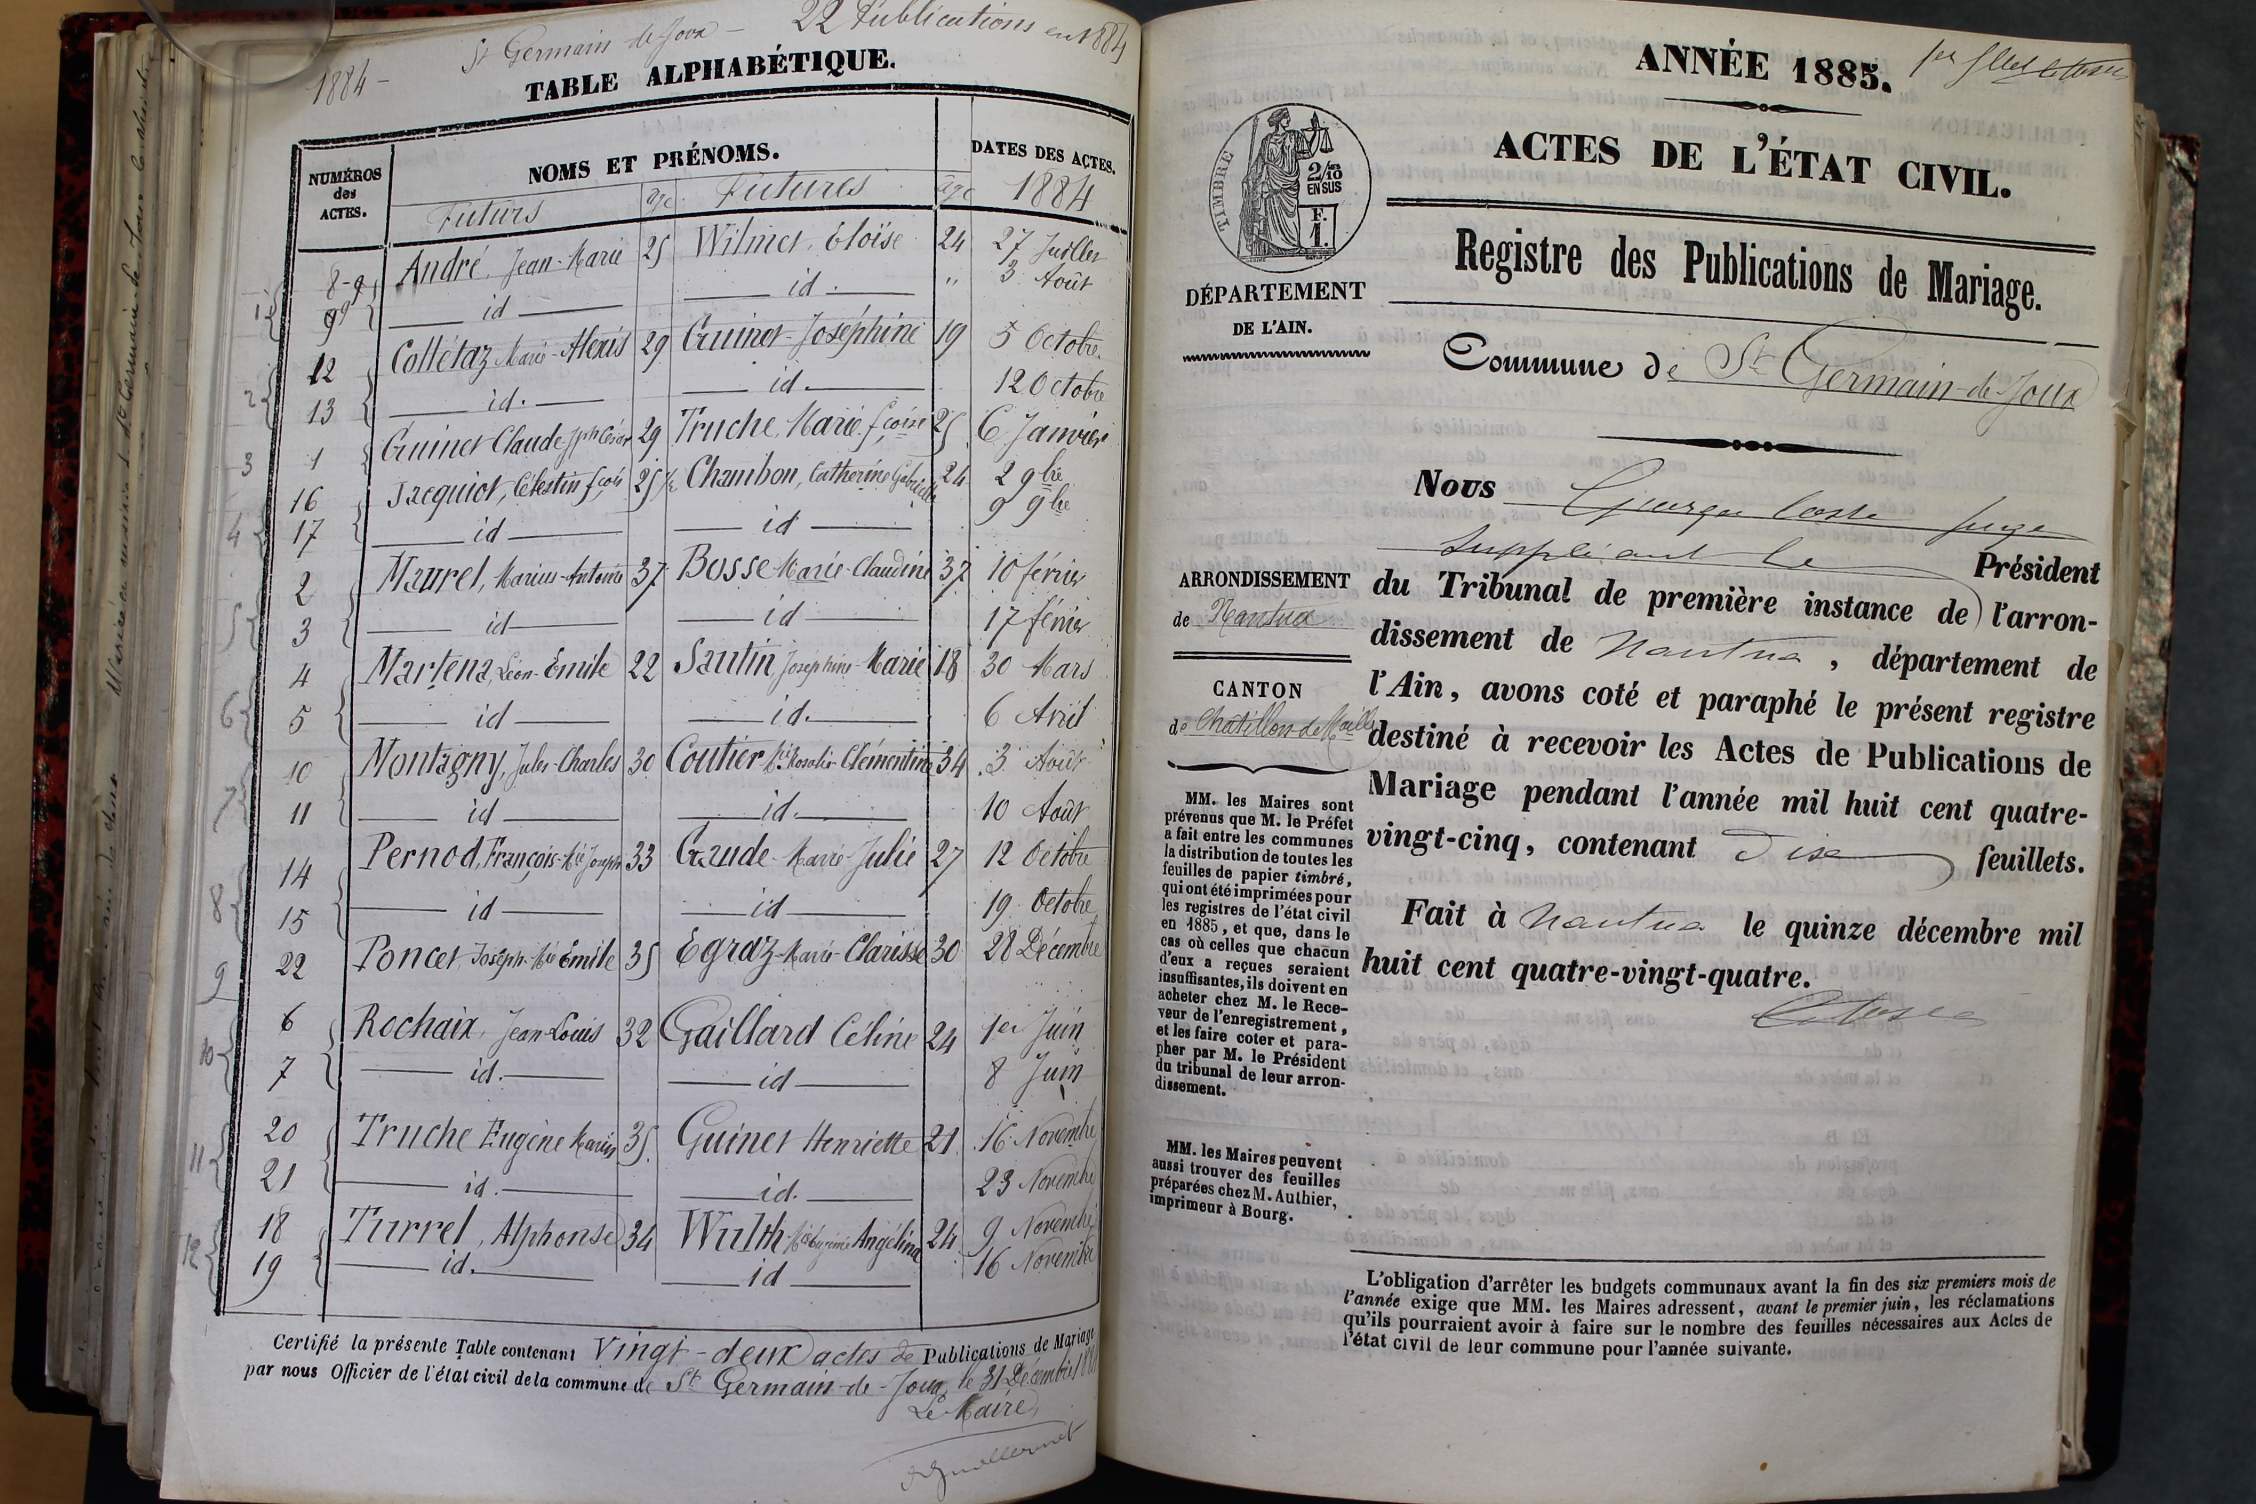 1884 - St Germain de Joux - 22 Publications en 1884
TABLE ALPHABÉTIQUE.
NUMÉROS des ACTES. NOMS ET PRÉNOMS. DATES DES ACTES.
Futurs age Futures age 1884
8 André, Jean-Marie 25 Wilmet, Eloïse 24 27 Juillet
1 9 id id. " 3 Août
12 Collétaz Marie-Alexis 29 Guinet-Joséphine 19 5 Octobre
2 13 id. id. 12 Octobre
3 1 Guinet Claude Jph César 29 Truche, Marie fçoise 25 6 Janvier
16 Jacquiot, Célestin fçois 25 Chambon, Catherine Gabrielle 24 2 9bre
4 17 id id 9 9bre
2 Maurel, Marius-Antoine 37 Bosse Marie-Claudine 37 10 février
5 3 id id 17 février
4 Martena, Léon-Emile 22 Santin, Joséphine-Marie 18 30 Mars
6 5 id id. 6 Avril
10 Montagny, Jules-Charles 30 Coutier Mie Rosalie-Clémentine 34 3 Août
7 11 id id. 10 Août
14 Pernod, François-Mie Joseph 33 Gaude-Marie-Julie 27 12 Octobre
8 15 id id 19 Octobre
9 22 Poncet Joseph-Mie Emile 35 Egraz-Marie-Clarisse 30 28 Décembre
6 Rochaix, Jean-Louis 32 Gaillard Céline 24 1er Juin
10 7 id. id 8 Juin
20 Truche Eugène Marius 35 Guinet Henriette 21 16 Novembre
11 21 id. id. 23 Novembre
18 Turrel, Alphonse 34 Wulth Angélina 24 9 Novembre
12 19 id. id 16 Novembre
Certifié la présente Table contenant Vingt-deux actes de Publications de Mariage
par nous Officier de l'état civil de la commune de St Germain-de-Joux, le 31 Décembre
Le Maire,
ANNÉE 1885.
ACTES DE L'ÉTAT CIVIL.
TIMBRE
2/10
EN SUS
F.
1.
Registre des Publications de Mariage.
DÉPARTEMENT
DE L'AIN.
Commune de St Germain-de-Joux
Nous Georges Coste juge
suppléant le Président
du Tribunal de première instance de l'arron-
dissement de Nantua, département de
l'Ain, avons coté et paraphé le présent registre
destiné à recevoir les Actes de Publications de
Mariage pendant l'année mil huit cent quatre-
vingt-cinq, contenant dix feuillets.
Fait à Nantua le quinze décembre mil
huit cent quatre-vingt-quatre.
ARRONDISSEMENT
de Nantua
CANTON
de Chatillon de Maille
MM. les Maires sont
prévenus que M. le Préfet
a fait entre les communes
la distribution de toutes les
feuilles de papier timbré,
qui ont été imprimées pour
les registres de l'état civil
en 1885, et que, dans le
cas où celles que chacun
d'eux a reçues seraient
insuffisantes, ils doivent en
acheter chez M. le Rece-
veur de l'enregistrement,
et les faire coter et para-
pher par M. le Président
du tribunal de leur arron-
dissement.
MM. les Maires peuvent
aussi trouver des feuilles
préparées chez M. Authier,
imprimeur à Bourg.
L'obligation d'arrêter les budgets communaux avant la fin des six premiers mois de
l'année exige que MM. les Maires adressent, avant le premier juin, les réclamations
qu'ils pourraient avoir à faire sur le nombre des feuilles nécessaires aux Actes de
l'état civil de leur commune pour l'année suivante.